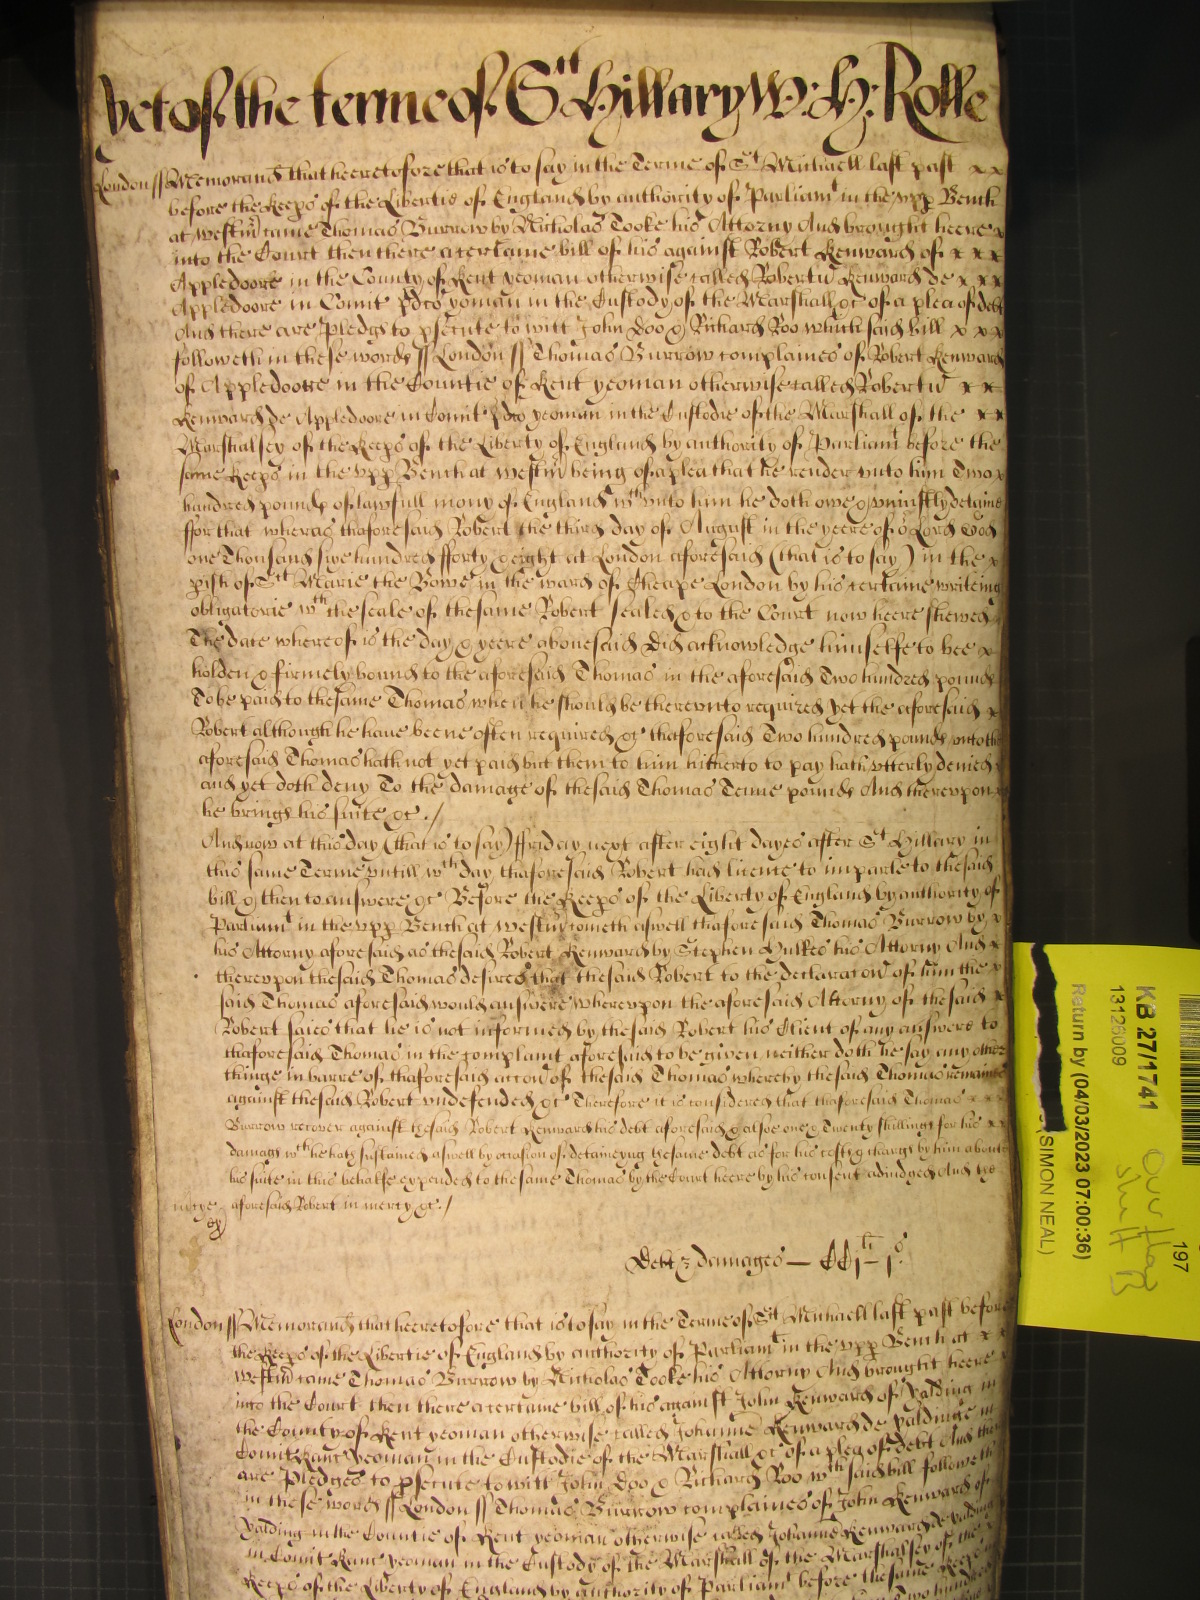 Yet of the terme of St Hillary W: H: Rolle
London ss Memorand that heeretofore that is to say in the Terme of St Michaell last past x x
before the Keeps of the Libertie of England by authority of Parliamt in the vpp Bench
at Westm came Thomas Burrow by Nicholas Tooke his Attorny And brought heere x
into the Court then there a certaine bill of his against Robert Kenward of x x x
Appledoore in the County of Kent yeoman otherwise called Robertu Kenward de x x x
Appledoore in Comit pdco yoman in the Custody of the Marshall &c of a plea of debt
And there are Pledgs to psecute to witt John Doo & Richard Roo which said bill x x x
followeth in these words ss London ss Thomas Burrow complaines of Robert Kenward
of Appledoore in the Countie of Kent yeoman otherwise called Robertu x x
Kenward de Appledoore in Comit pdco yeoman in the Custodie of the Marshall of the x x
Marshalsey of the Keeps of the Liberty of England by authority of Parliamt before the
same Keeps in the vpp Bench at Westm being of a plea that he render vnto him Two x
hundred pounds of lawfull mony of England wch vnto him he doth owe & vniustly detaine
ffor that wheras thaforesaid Robert the third day of August in the yeere of or Lord God
one Thousand six hundred fforty & eight at London aforesaid (that is to say) in the x
pish of St Marie the Bowe in the ward of Cheape London by his certaine writeing
obligatorie wth the seale of the same Robert sealed & to the Court now heere shewed
The date whereof is the day & yeere abouesaid Did acknowledge himselfe to bee x
holden & firmely bound to the aforesaid Thomas in the aforesaid Two hundred pounds
To be paid to the same Thomas when he should be therevnto required yet the aforesaid x
Robert although he haue beene often required &c thaforesaid Two hundred pounds vnto the
aforesaid Thomas hath not yet paid but them to him hitherto to pay hath vtterly denied
and yet doth deny To the damage of the said Thomas Tenne pounds And therevpon
he brings his suite &c ./
And now at this day (that is to say) ffriday next after eight dayes after St Hillary in
this same Terme vntill wch day thaforesaid Robert had licence to imparle to the said
bill & then to answere &c Before the Keeps of the Liberty of England by authority of
Parliamt in the vpp Bench at Westm cometh aswell thaforesaid Thomas Burrow by x
his Attorny aforesaid as the said Robert Kenward by Stephen Hulkes his Attorny And x
therevpon the said Thomas desires that the said Robert to the declaracon of him the x
said Thomas aforesaid would answere wherevpon the aforesaid Attorny of the said x
Robert saies that he is not informed by the said Robert his Client of any answere to
thaforesaid Thomas in the complaint aforesaid to be given neither doth he say any other
thinge in barre of thaforesaid accon of the said Thomas whereby the said Thomas remaines
against the said Robert vndefended &c Therefore it is considered that thaforesaid Thomas x x x
Burrow recover against the said Robert Kenward his debt aforesaid & alsoe one & Twenty shillings for his x x
damags wch he hath sustained aswell by occasion of detayneing the same debt as for his costs & chargs by him about
his suite in this behalfe expended to the same Thomas by the Court heere by his consent adiudged And the
mcye
aforesaid Robert in mercy &c ./
Debt & damages — CCjli js
London ss Memorand that heeretofore that is to say in the Terme of St Michaell last past before
the Keeps of the Libertie of England by authority of Parliamt in the vpp Bench at x x
Westm came Thomas Burrow by Nicholas Tooke his Attorny And brought heere
into the Court then there a certaine bill of his against John Kenward of Yalding in
the County of Kent yeoman otherwise called Johanne Kenward de Yaldinge in
Comit Kanc yeoman in the Custodie of the Marshall &c of a plea of debt And there
are Pledges to psecute to witt John Doo & Richard Roo wch said bill followeth
in these words ss London ss Thomas Burrow complaines of John Kenward of
Yalding in the Countie of Kent yeoman otherwise called Johanne Kenward de Yalding
in Comit Kanc yeoman in the Custody of the Marshall of the Marshalsey of the
Keeps of the Liberty of England by authority of Parliamt before the same Keeps
197
KB 27/1741
13126009
Return by (04/03/2023 07:00:36)
(SIMON NEAL)